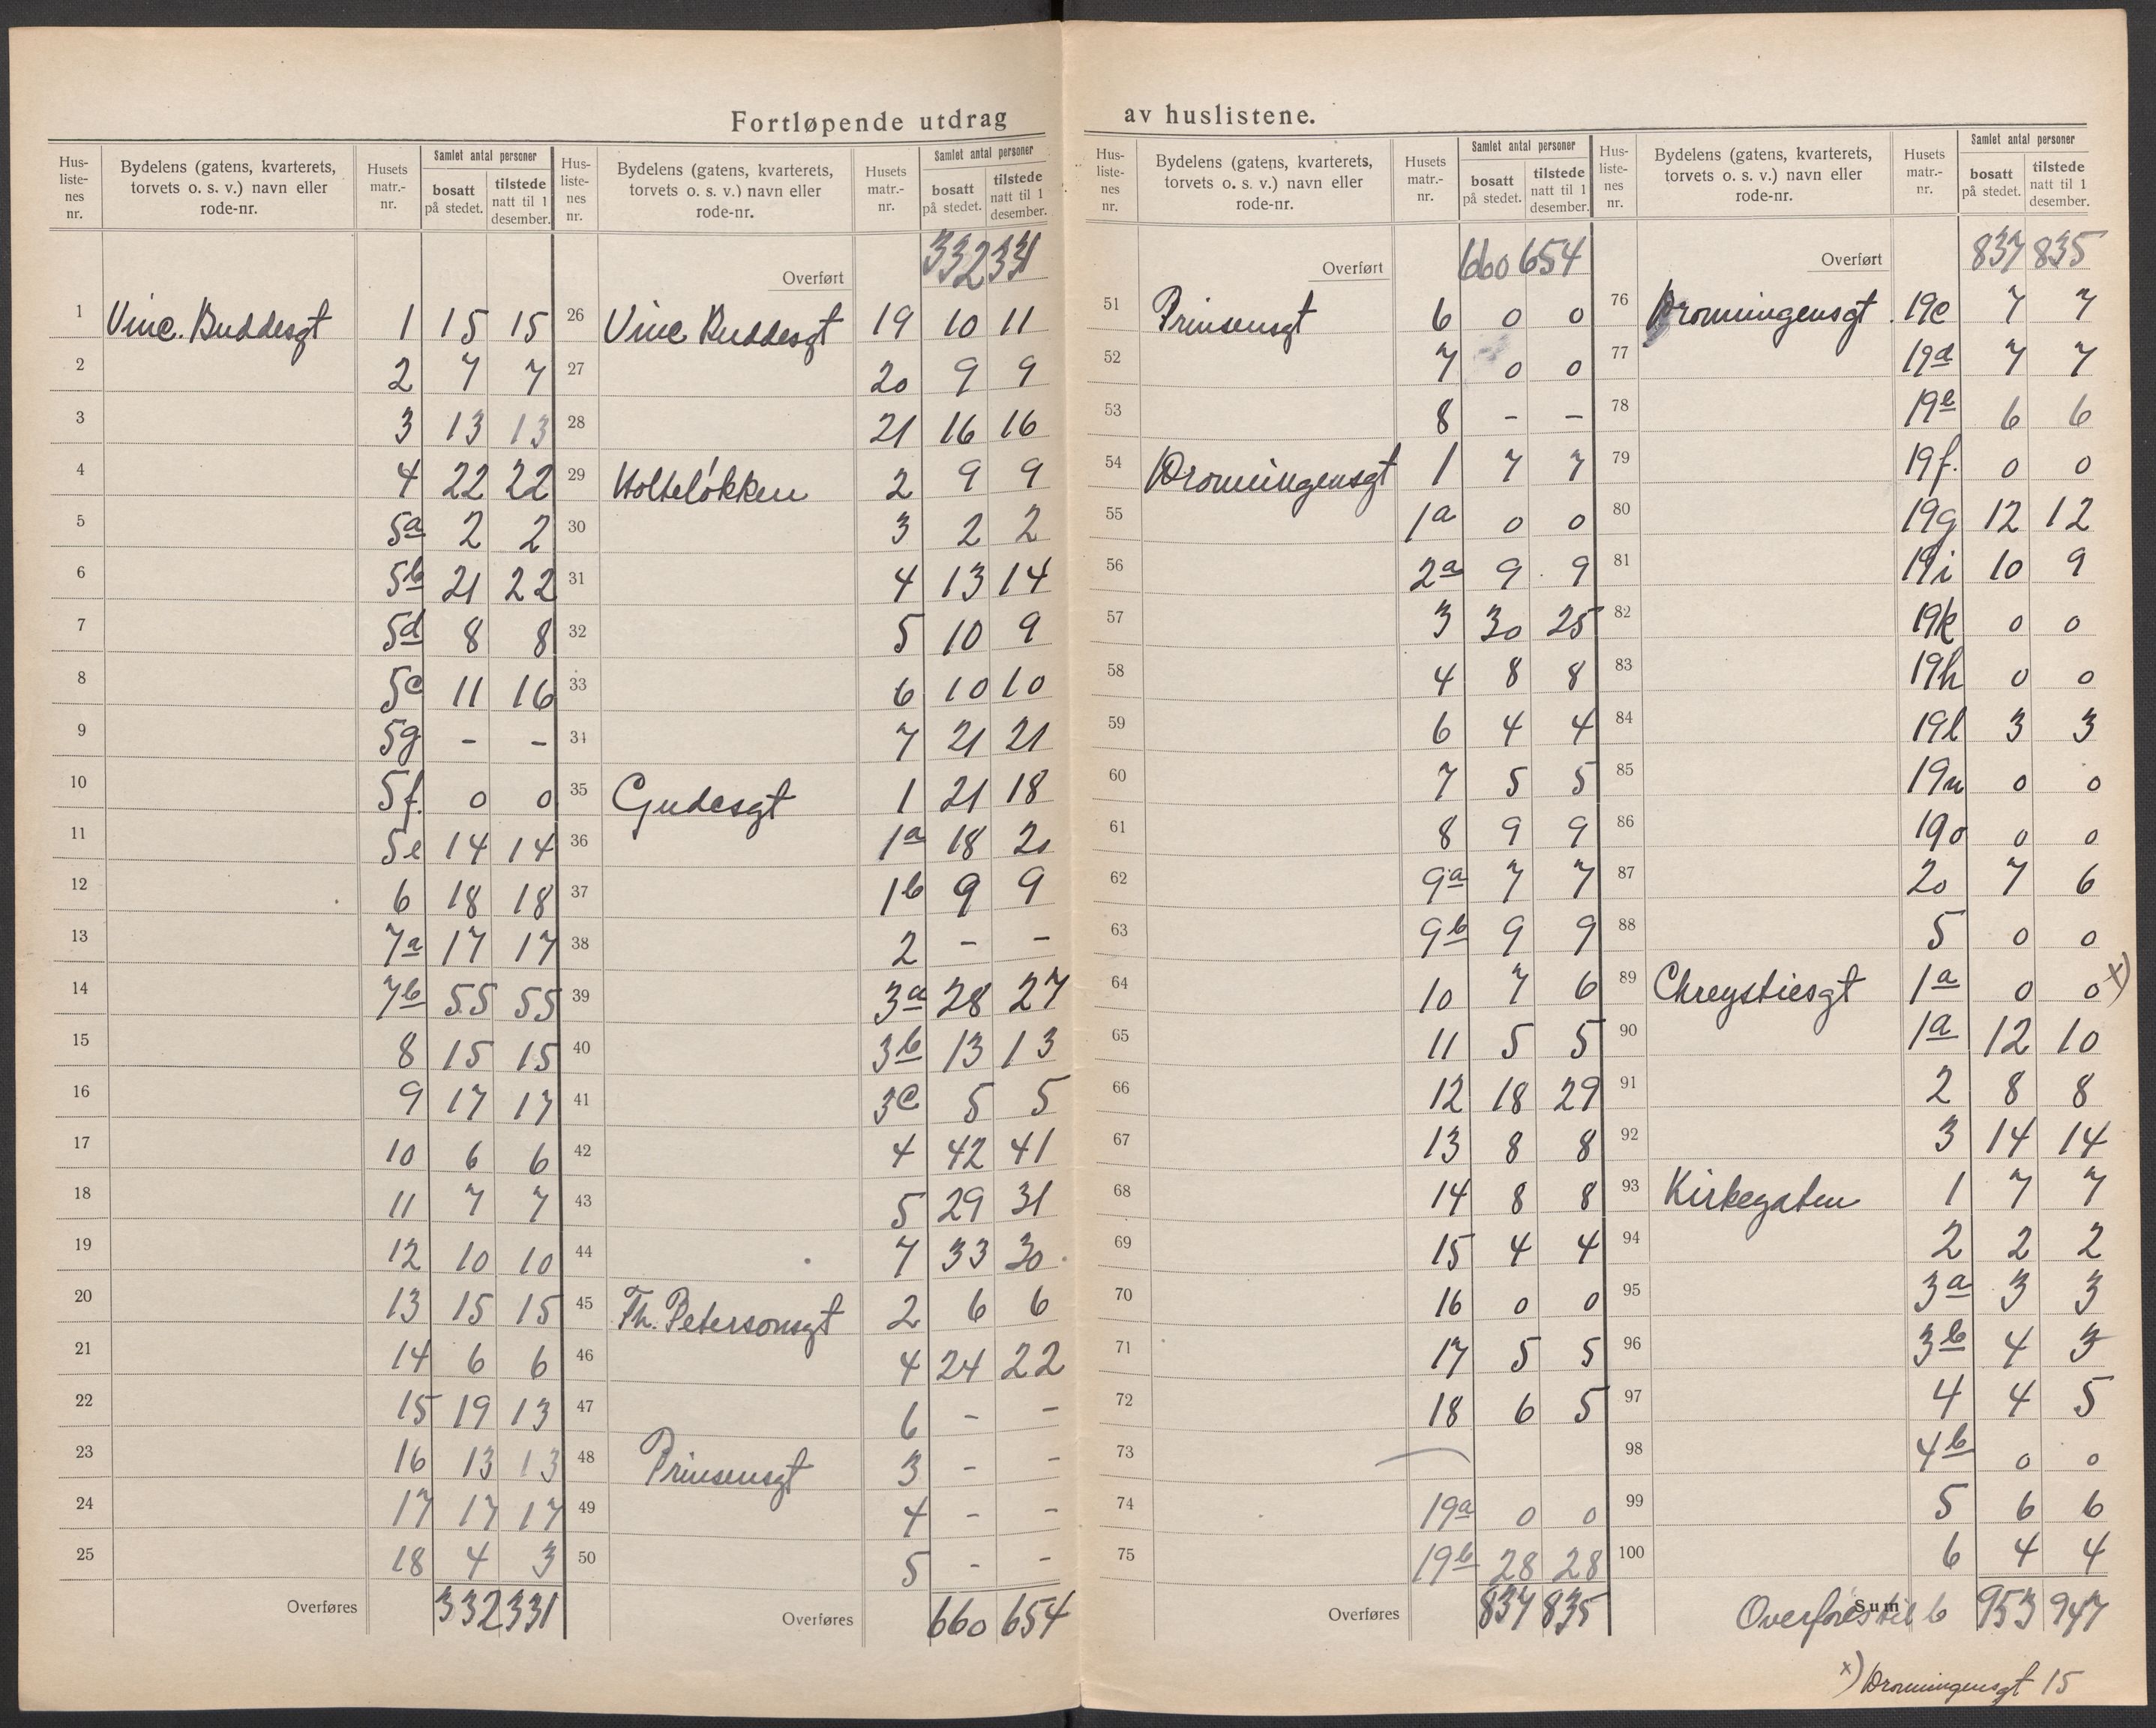 Fortløpende utdrag av huslistene.
Hus-liste-nes nr. | Bydelens (gatens, kvarterets, torvets o. s. v.) navn eller rode-nr. | Husets matr.-nr. | Samlet antal personer bosatt på stedet. | tilstede natt til 1 desember.
1 Vinc. Buddesgt 1 15 15
2 2 7 7
3 3 13 13
4 4 22 22
5 5a 2 2
6 5b 21 22
7 5d 8 8
8 5c 11 16
9 5g - -
10 5f. 0 0
11 5e 14 14
12 6 18 18
13 7a 17 17
14 7b 55 55
15 8 15 15
16 9 17 17
17 10 6 6
18 11 7 7
19 12 10 10
20 13 15 15
21 14 6 6
22 15 19 13
23 16 13 13
24 17 17 17
25 18 4 3
Overføres 332 331
Hus-liste-nes nr. | Bydelens (gatens, kvarterets, torvets o. s. v.) navn eller rode-nr. | Husets matr.-nr. | Samlet antal personer bosatt på stedet. | tilstede natt til 1 desember.
Overført 332 331
26 Vinc Buddesgt 19 10 11
27 20 9 9
28 21 16 16
29 Holteløkken 2 9 9
30 3 2 2
31 4 13 14
32 5 10 9
33 6 10 10
34 7 21 21
35 Gudesgt 1 21 18
36 1a 18 20
37 1b 9 9
38 2 - -
39 3a 28 27
40 3b 13 13
41 3c 5 5
42 4 42 41
43 5 29 31
44 7 33 30
45 Th. Petersonsgt 2 6 6
46 4 24 22
47 6 - -
48 Prinsensgt 3 - -
49 4 - -
50 5 - -
Overføres 660 654
Hus-liste-nes nr. | Bydelens (gatens, kvarterets, torvets o. s. v.) navn eller rode-nr. | Husets matr.-nr. | Samlet antal personer bosatt på stedet. | tilstede natt til 1 desember.
Overført 660 654
51 Prinsensgt 6 0 0
52 7 0 0
53 8 - -
54 Dronningensgt 1 7 7
55 1a 0 0
56 2a 9 9
57 3 30 25
58 4 8 8
59 6 4 4
60 7 5 5
61 8 9 9
62 9a 7 7
63 9b 9 9
64 10 7 6
65 11 5 5
66 12 18 29
67 13 8 8
68 14 8 8
69 15 4 4
70 16 0 0
71 17 5 5
72 18 6 5
73
74 19a 0 0
75 19b 28 28
Overføres 837 835
Hus-liste-nes nr. | Bydelens (gatens, kvarterets, torvets o. s. v.) navn eller rode-nr. | Husets matr.-nr. | Samlet antal personer bosatt på stedet. | tilstede natt til 1 desember.
Overført 837 835
76 Dronningensgt. 19c 7 7
77 19d 7 7
78 19e 6 6
79 19f. 0 0
80 19g 12 12
81 19i 10 9
82 19k 0 0
83 19h 0 0
84 19l 3 3
85 19n 0 0
86 19o 0 0
87 20 7 6
88 5 0 0
89 Chrystiesgt 1a 0 0 x)
90 1a 12 10
91 2 8 8
92 3 14 14
93 Kirkegaten 1 7 7
94 2 2 2
95 3a 3 3
96 3b 4 3
97 4 4 5
98 4b 0 0
99 5 6 6
100 6 4 4
Overføres til 6 Sum 953 947
x) Dronningensgt 15